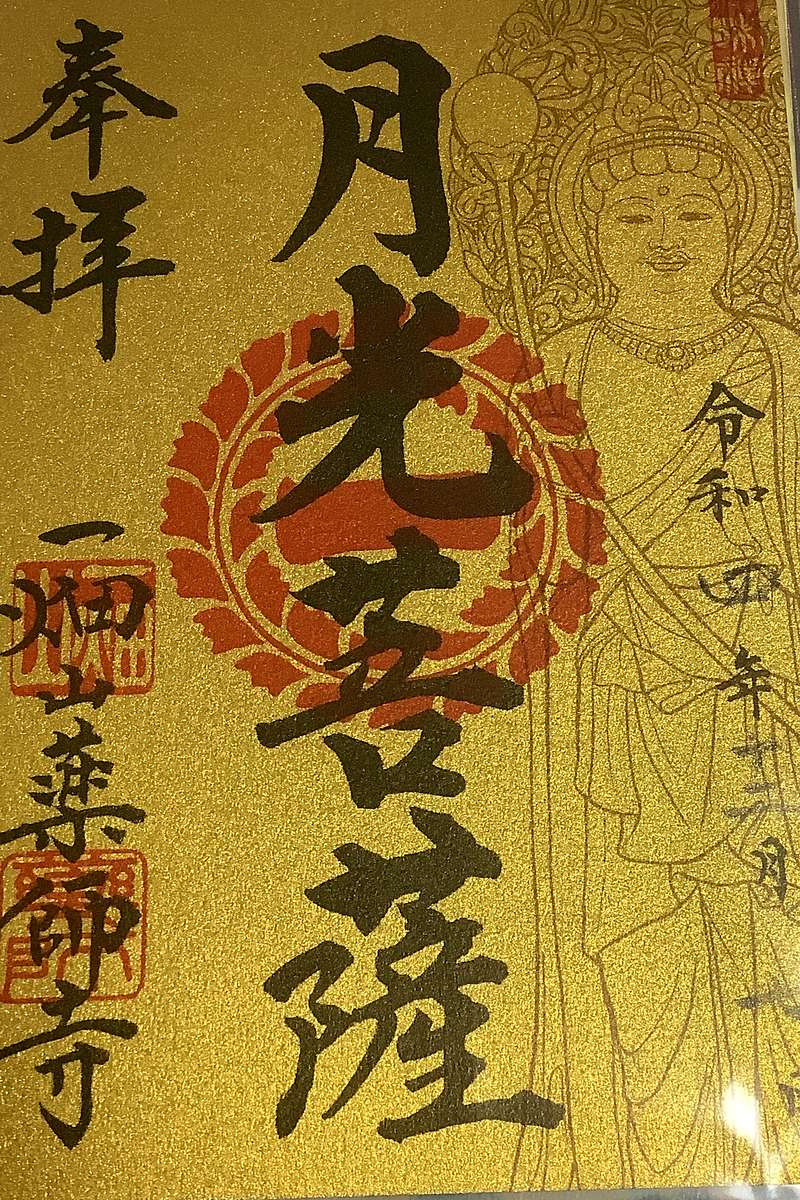 令和四年十二月
月光菩薩
奉拝
一畑山薬師寺